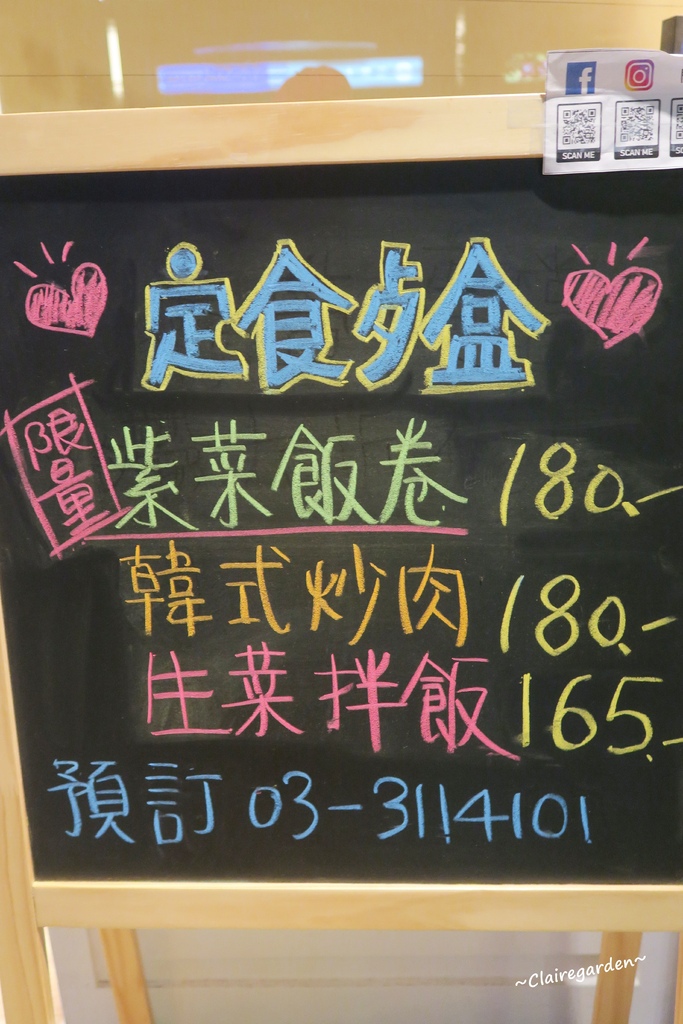 SCAN ME
SCAN ME
定食歺盒
限量
紫菜飯卷 180.-
韓式炒肉 180.-
生菜拌飯 165.-
預訂 03-3114101
~Clairegarden~